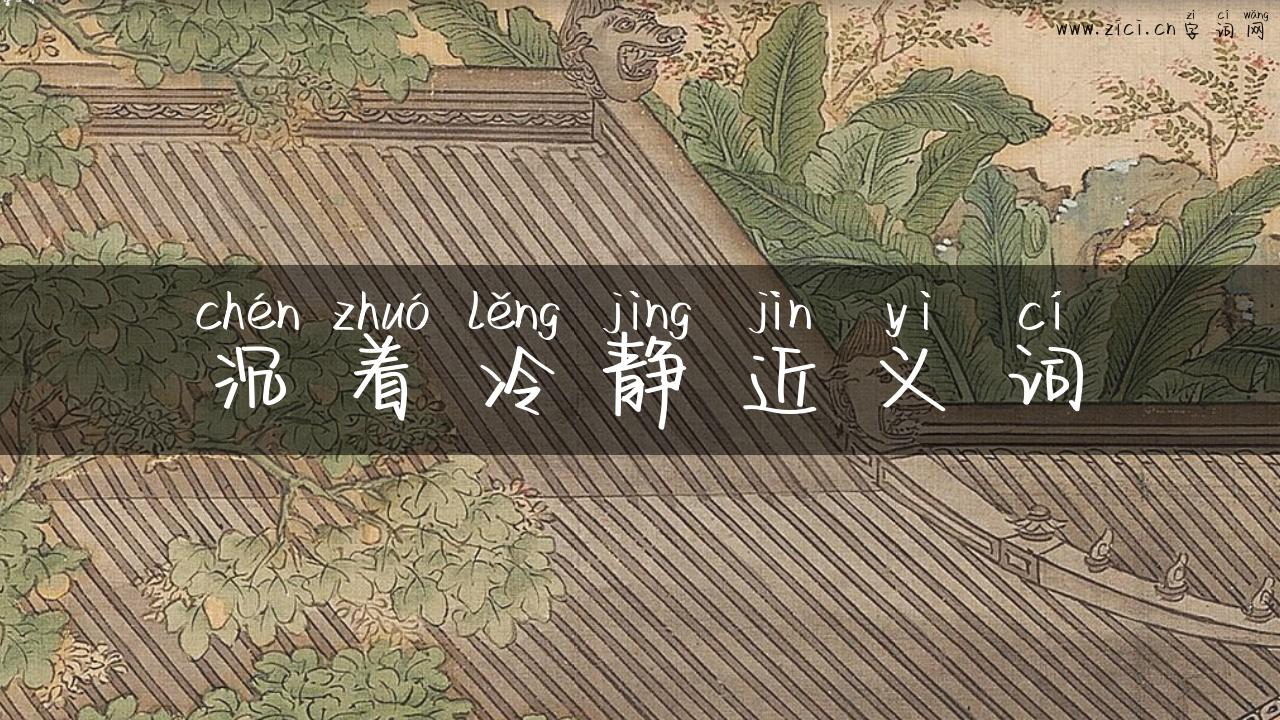 zì cí wǎng
www.zici.cn 字词网
chén zhuó lěng jìng jìn yì cí
沉着冷静近义词